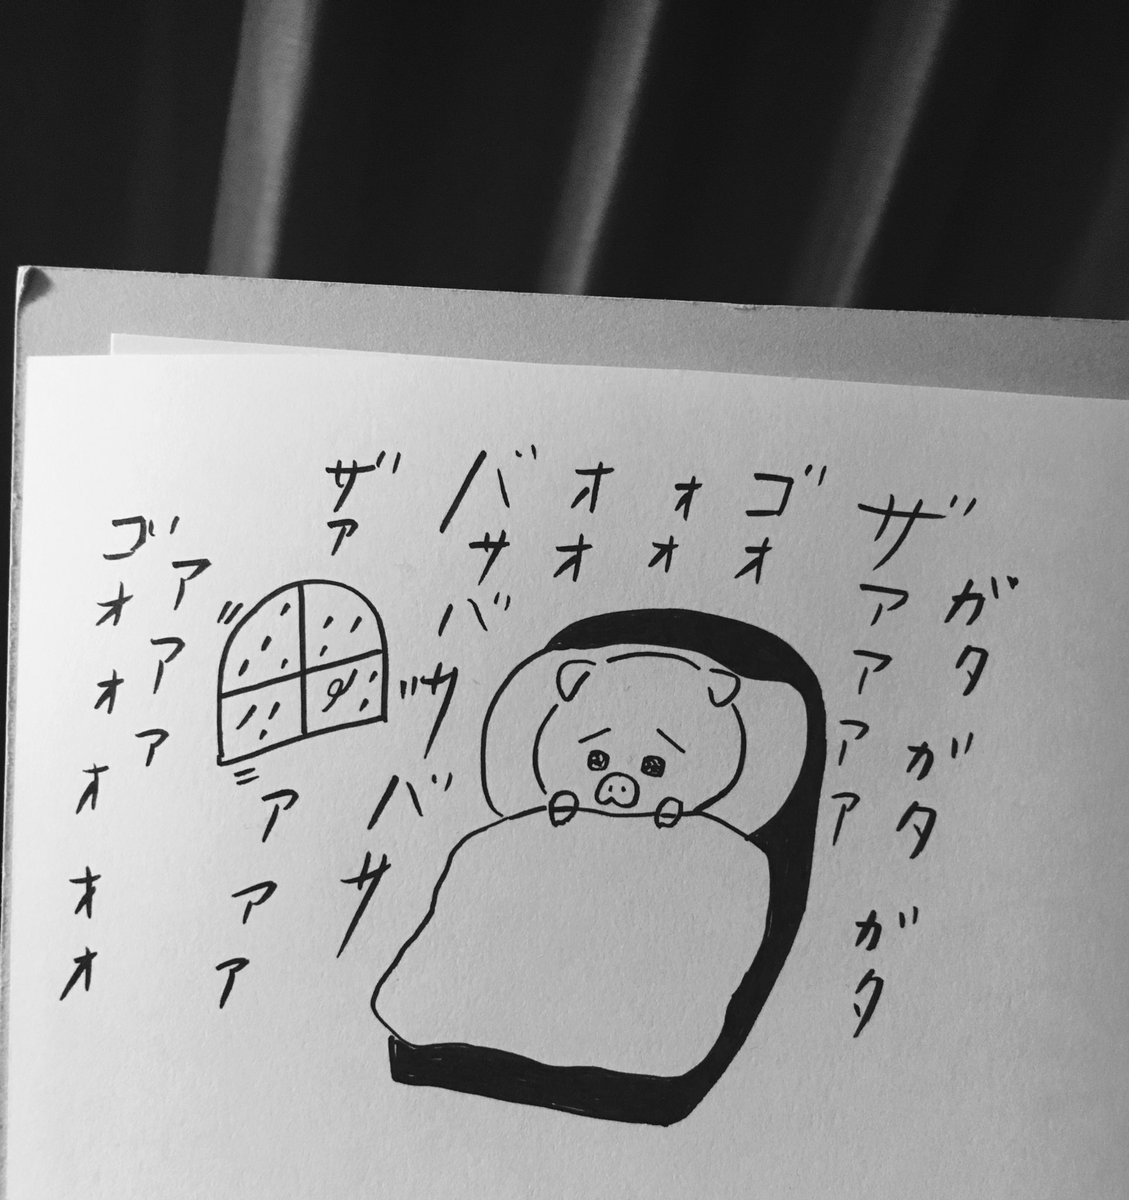 ガタガタガタ
ザアアアア
ゴオ
オオ
オオ
バサバサバサ
ザアアアア
アアア
ゴオオオオオ